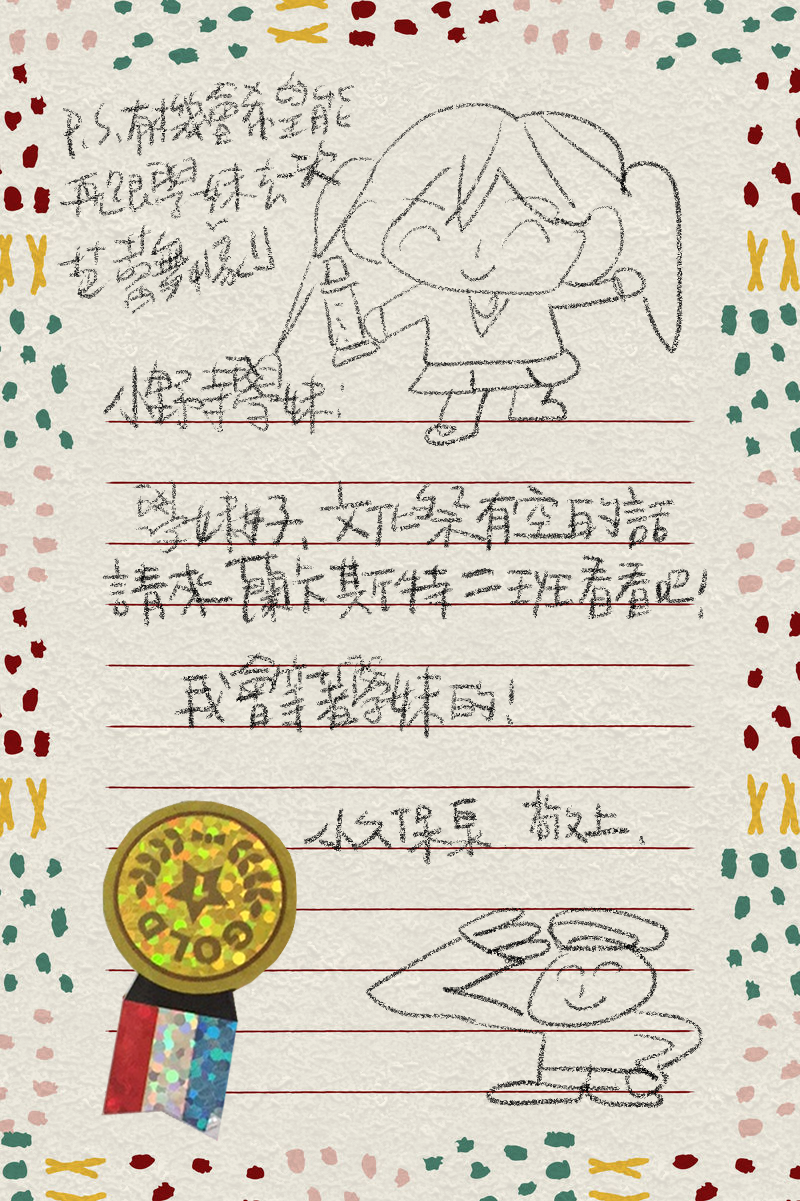 P.S.有機會希望能
再跟學妹去次
芸薹舞場!!
小野寺學妹:
學妹好、文化祭有空的話
請來蘭卡斯特二班看看吧!
我會等著學妹的!
小久保杲 敬上、
GOLD